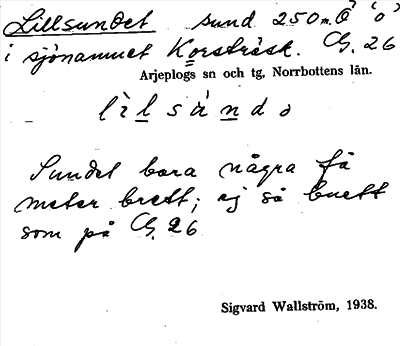 Lillsundet sund 250 m. Ö "o"
i sjönamnet Korsträsk. G. 26
Arjeplogs sn och tg, Norrbottens län.
lìlsándo
Sundet bara några få
meter brett; ej så brett
som på G. 26
Sigvard Wallström, 1938.